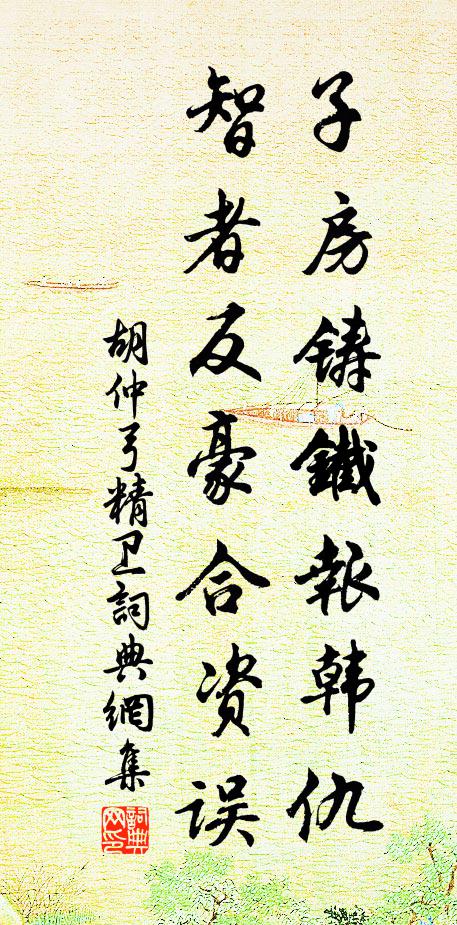 子房铸鐵报韩仇
智者反豪合资误
胡仲弓精卫詞典網集
詞典网印